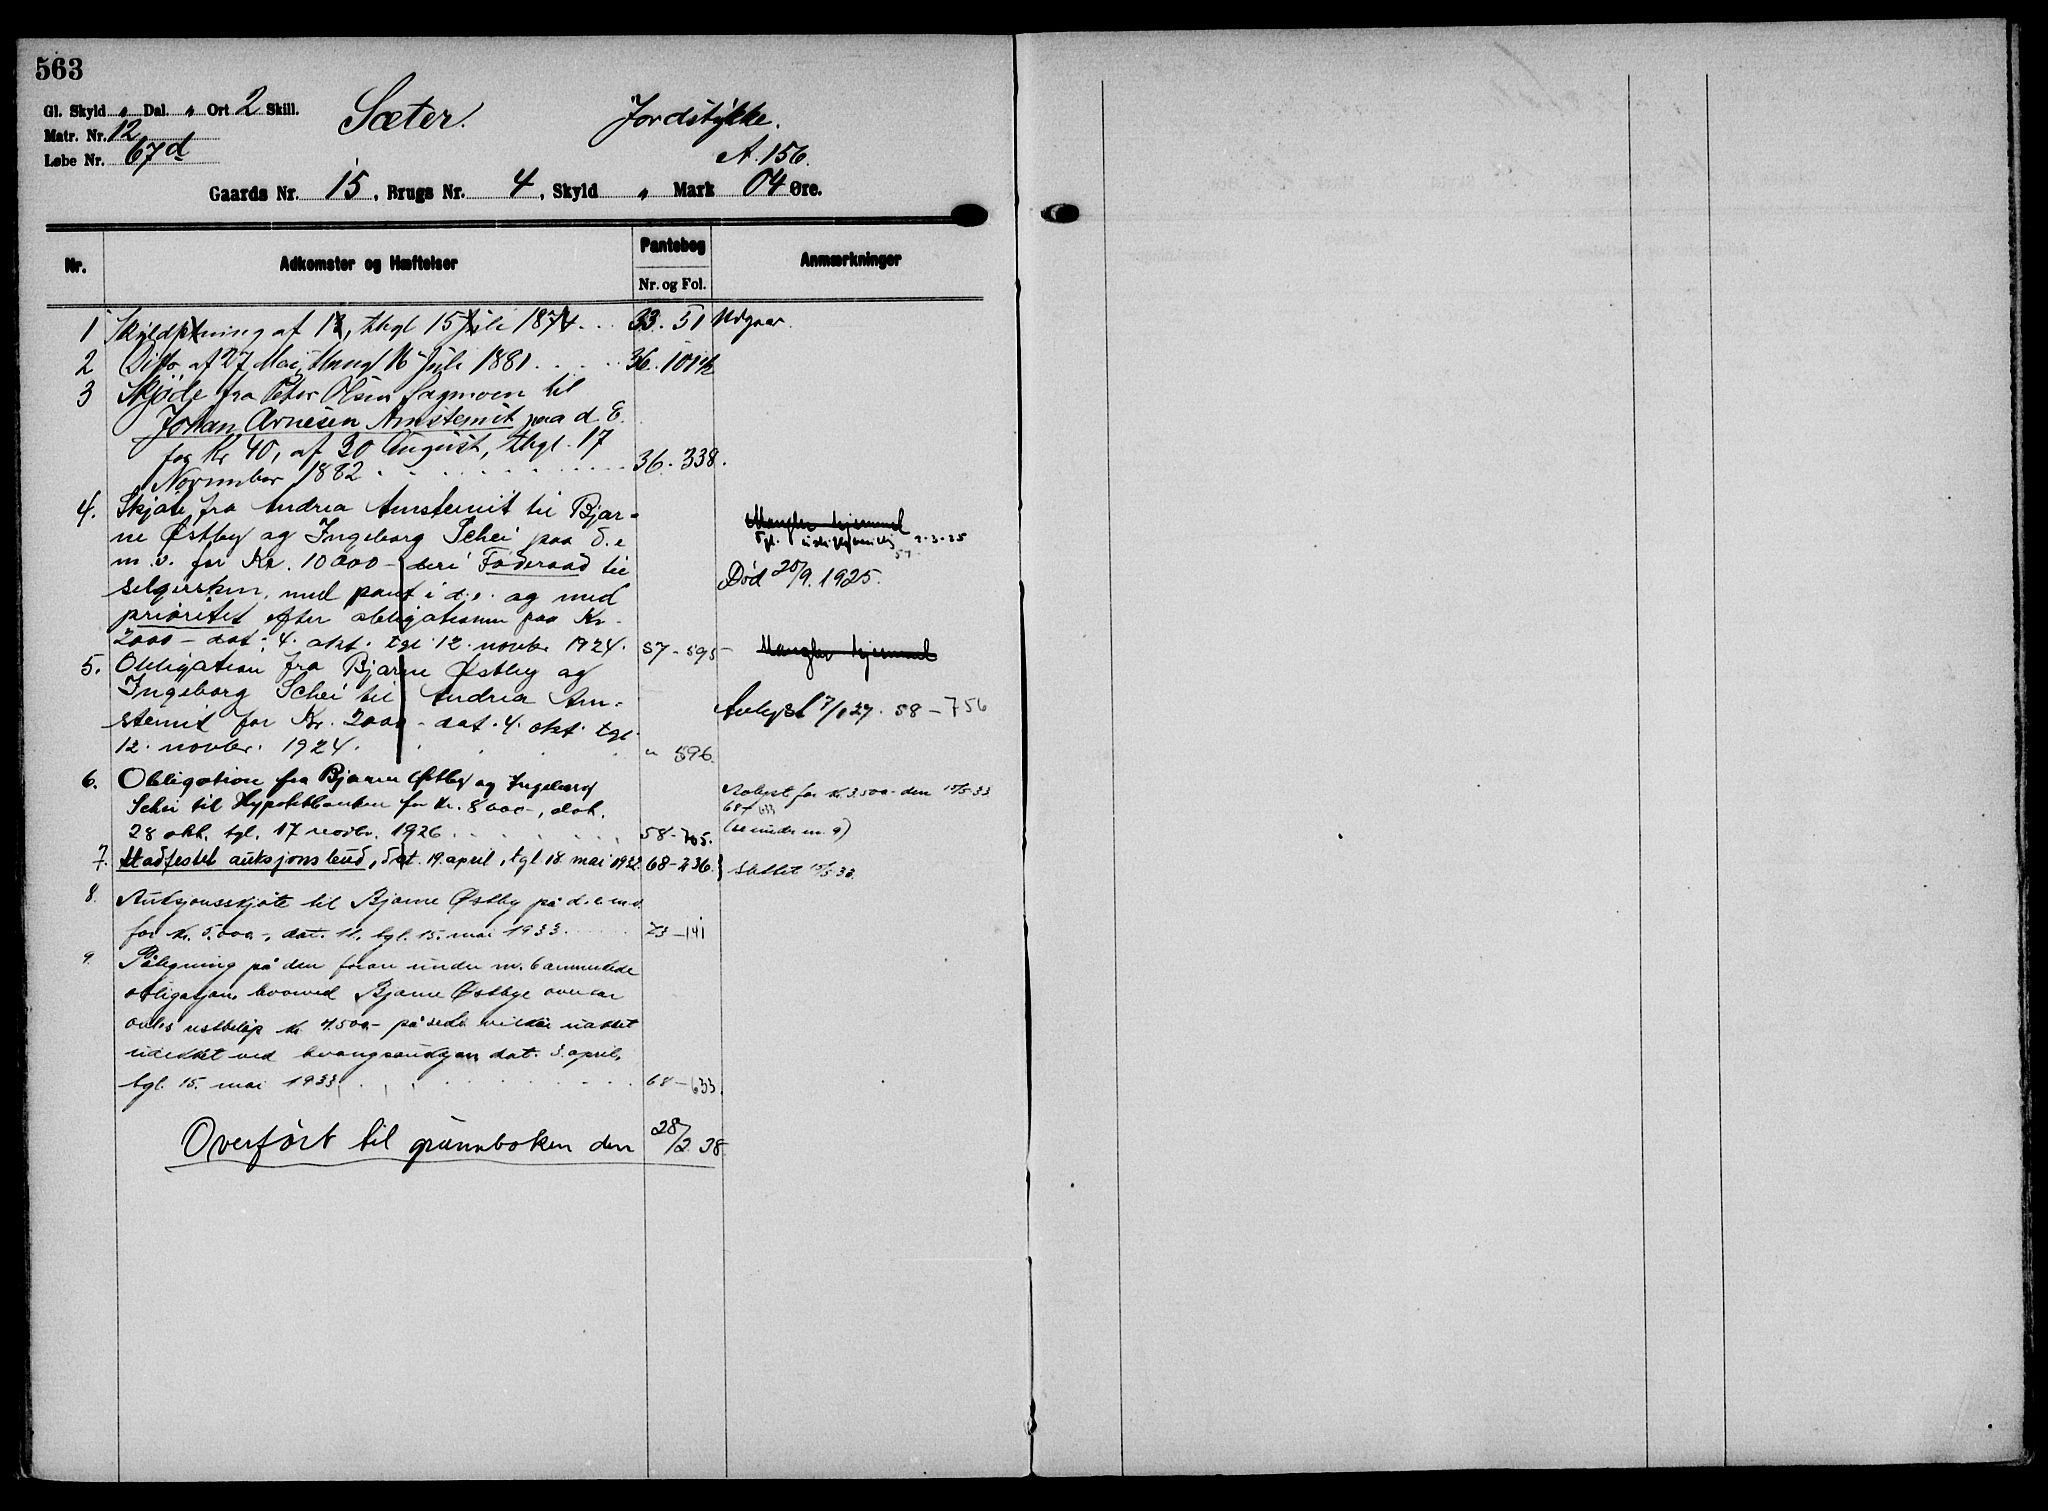 563
Gl. Skyld " Dal. " Ort 2 Skill.
Matr. Nr. 12
Løbe Nr. 67d
Sæter. Jordstykke.
A. 156.
Gaards Nr. 15, Brugs Nr. 4, Skyld " Mark 04 Øre.
Nr. Adkomster og Hæftelser Pantebog Nr. og Fol. Anmærkninger
1 Skyldsætning af 13, thgl 15 Juli 1874 . . . 33. 51 Udgaar.
2 Ditto af 27 Mai, 16 Juli 1881 . . . . 36.
3 Skjøde fra Peter Olsen Sagmoen til
Johan Arnesen Amstemit paa d. E.
for Kr 40, af 30 August, thgl. 17
November 1882 . . . . . . 36. 338.
4. Skjøte fra Andrea Amstemit til Bjar-
ne Østby og Ingeborg Schei paa d. e
m. v. for Kr. 10000 - deri Føderaad til
selgersken, med pant i d. e. og med
prioritet efter obligationen paa Kr.
2000 - dat. 4. okt. tgl. 12. novbr 1924. 57 - 595
Mangler hjemmel
2-3-25
Død 20/9. 1925.
5. Obligation fra Bjarne Østby og
Ingeborg Schei til Andrea Am-
stemit for Kr. 2000 - dat. 4. okt. tgl.
12. novbr. 1924. . . . . " 596.
Mangler hjemmel
Avlyst 7/1 27. 58 - 756
6. Obligation fra Bjarne Østby og Ingeborg
Schei til Hypotekbanken for kr. 8000-, dat.
28 okt. tgl. 17 novbr. 1926 . . . . . . 58 - 705.
Avlyst for kr 3500 - den 15/5 33
68 - 633
(se under nr. 9)
7. Stadfestet auksjonsbud, dat. 19. april, tgl 18. mai 1932 68 - 236. } Slettet 15/5 33.
8. Auksjonsskjøte til Bjarne Østby på d. e. m. v.
for kr. 5.000.-, dat. 11, tgl. 15. mai 1933. . . . 73 - 141
9. Påtegning på den foran under nr. 6 anmerkede
obligasjon, hvorved Bjarne Østbye overtar
restbeløp kr 4.500.-
dat. 3. april,
tgl. 15. mai 1933. . . . . . . . 68 - 633.
Overført til grunnboken den 28/2 38